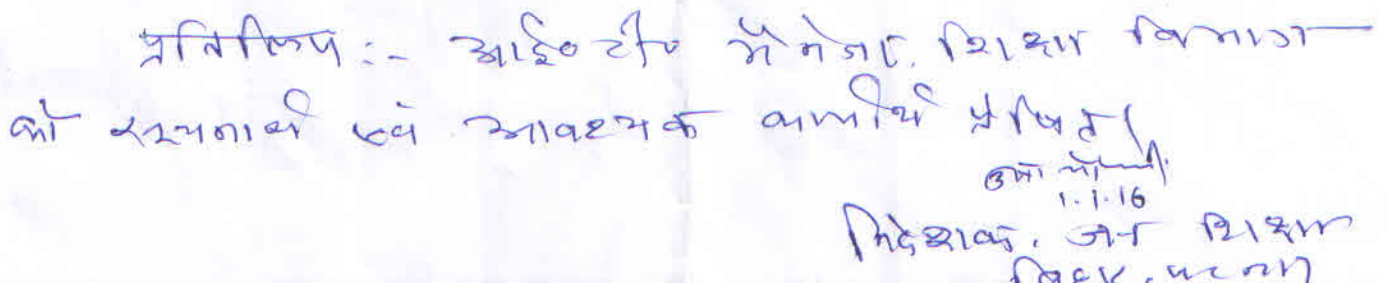 प्रतिलिपि:- आई० टी० मैनेजर, शिक्षा विभाग
को सूचनार्थ एवं आवश्यक कार्यार्थ प्रेषित।
1.1.16
निदेशक, जन शिक्षा
बिहार, पटना